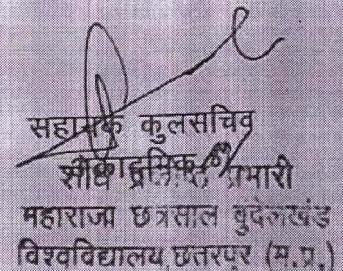 सहायक कुलसचिव
शोध प्रभारी
महाराजा छत्रसाल बुंदेलखंड
विश्वविद्यालय,छतरपुर (म.प्र.)